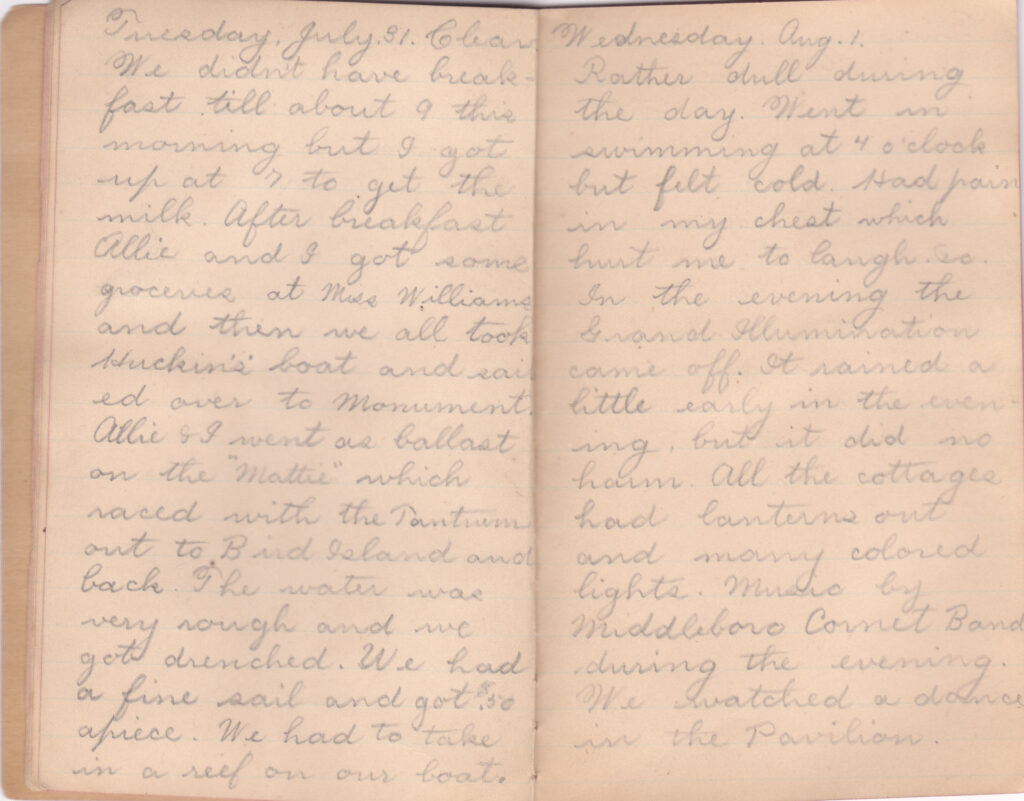 Tuesday, July. 31. Clear
We didn't have break-
fast till about 9 this
morning but I got
up at 7 to get the
milk. After breakfast
Allie and I got some
groceries at Miss Williams
and then we all took
Huckins's boat and sail
ed over to Monument.
Allie & I went as ballast
on the "Mattie" which
raced with the Tantrum
out to Bird Island and
back. The water was
very rough and we
got drenched. We had
a fine sail and got $.50
apiece. We had to take
in a reef on our boat.
Wednesday. Aug. 1.
Rather dull during
the day. Went in
swimming at 4 o'clock
but felt cold. Had pain
in my chest which
hurt me to laugh so.
In the evening the
Grand Illumination
came off. It rained a
little early in the even-
ing, but it did no
harm. All the cottages
had lanterns out
and many colored
lights. Music by
Middleboro Cornet Band
during the evening.
We watched a dance
in the Pavilion.